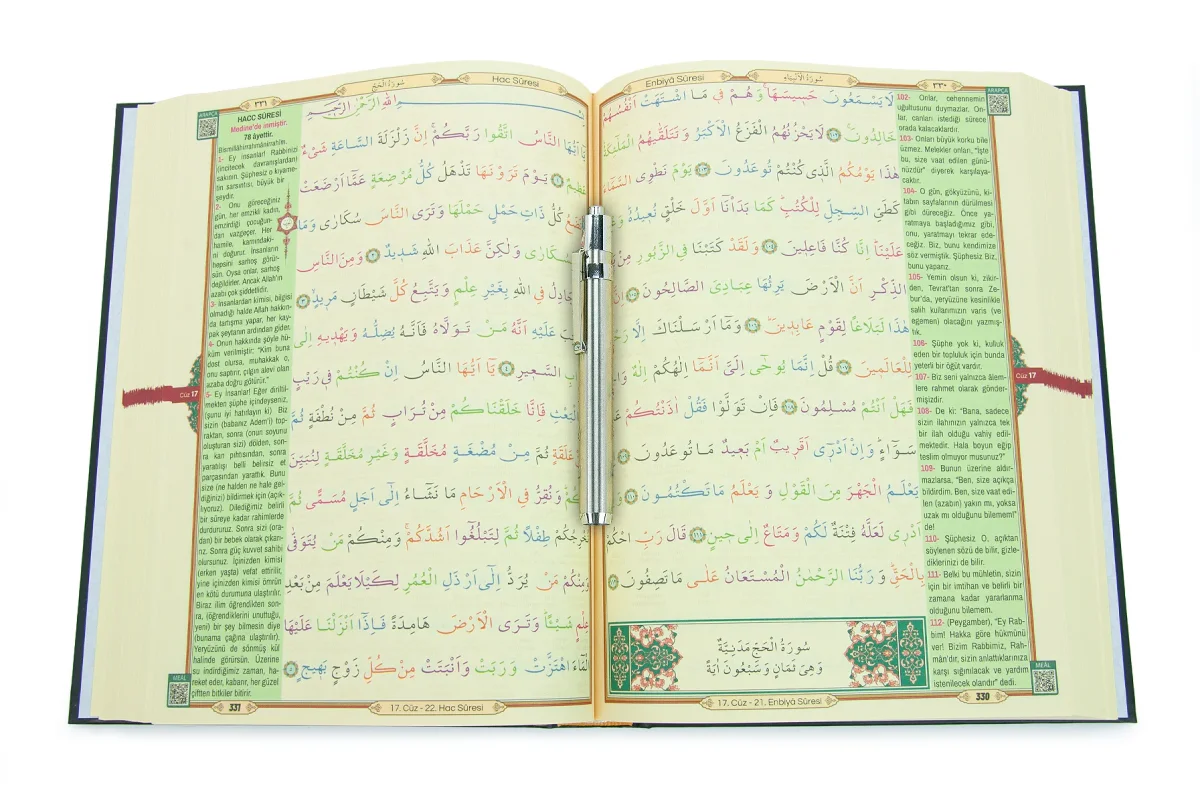 Enbiyâ Sûresi
سُورَةُ الْاَنْبِيَاءِ
٣٣٠
ARAPÇA
لَا يَسْمَعُونَ حَسِيسَهَا وَهُمْ فِي مَا اشْتَهَتْ اَنْفُسُهُمْ
خَالِدُونَ ﴿١٠٢﴾ لَا يَحْزُنُهُمُ الْفَزَعُ الْاَكْبَرُ وَتَتَلَقّٰيهُمُ الْمَلٰٓئِكَةُ
هٰذَا يَوْمُكُمُ الَّذِي كُنْتُمْ تُوعَدُونَ ﴿١٠٣﴾ يَوْمَ نَطْوِي السَّمَٓاءَ
كَطَيِّ السِّجِلِّ لِلْكُتُبِ كَمَا بَدَأْنَٓا اَوَّلَ خَلْقٍ نُعِيدُهُ
عَلَيْنَا اِنَّا كُنَّا فَاعِلِينَ ﴿١٠٤﴾ وَلَقَدْ كَتَبْنَا فِي الزَّبُورِ مِنْ
الذِّكْرِ اَنَّ الْاَرْضَ يَرِثُهَا عِبَادِيَ الصَّالِحُونَ ﴿١٠٥﴾
هٰذَا لَبَلَاغًا لِقَوْمٍ عَابِدِينَ ﴿١٠٦﴾ وَمَٓا اَرْسَلْنَاكَ اِلَّا
لِلْعَالَمِينَ ﴿١٠٧﴾ قُلْ اِنَّمَا يُوحٰٓى اِلَيَّ اَنَّمَٓا اِلٰهُكُمْ اِلٰهٌ
فَهَلْ اَنْتُمْ مُسْلِمُونَ ﴿١٠٨﴾ فَاِنْ تَوَلَّوْا فَقُلْ اٰذَنْتُكُمْ
سَوَٓاءٍ وَاِنْ اَدْرِٓي اَقَرِيبٌ اَمْ بَعِيدٌ مَا تُوعَدُونَ
يَعْلَمُ الْجَهْرَ مِنَ الْقَوْلِ وَيَعْلَمُ مَا تَكْتُمُونَ
اَدْرِي لَعَلَّهُ فِتْنَةٌ لَكُمْ وَمَتَاعٌ اِلٰى حِينٍ ﴿١١١﴾ قَالَ رَبِّ احْكُمْ
بِالْحَقِّ وَرَبُّنَا الرَّحْمٰنُ الْمُسْتَعَانُ عَلٰى مَا تَصِفُونَ
سُورَةُ الْحَجِّ مَدَنِيَّةٌ
وَهِيَ ثَمَانٍ وَسَبْعُونَ اٰيَةً
102- Onlar, cehennemin
uğultusunu duymazlar. On-
lar, canları istediği sürece
orada kalacaklardır.
103- Onları büyük korku bile
üzmez. Melekler onları, “İşte
bu, size vaat edilen günü-
nüzdür” diyerek karşılaya-
caktır.
104- O gün, gökyüzünü, ki-
tabın sayfalarının dürülmesi
gibi düreceğiz. Önce ya-
ratmaya başladığımız gibi,
onu, yaratmayı tekrar ede-
ceğiz. Biz, bunu kendimize
söz vermiştik. Şüphesiz Biz,
bunu yaparız.
105- Yemin olsun ki, zikir-
den, Tevrat'tan sonra Ze-
bur'da, yeryüzüne kesinlikle
salih kullarımızın varis (ve
egemen) olacağını yazmış-
tık.
106- Şüphe yok ki, kulluk
eden bir topluluk için bunda
yeterli bir öğüt vardır.
107- Biz seni yalnızca âlem-
lere rahmet olarak gönder-
mişizdir.
108- De ki: “Bana, sadece
sizin ilahınızın yalnızca tek
bir ilah olduğu vahiy edil-
mektedir. Hala boyun eğip
teslim olmuyor musunuz?”
109- Bunun üzerine aldır-
mazlarsa, “Ben, size açıkça
bildirdim. Ben, size vaat edi-
len (azabın) yakın mı, yoksa
uzak mı olduğunu bilemem!”
de!
110- Şüphesiz O, açıktan
söylenen sözü de bilir, gizle-
diklerinizi de bilir.
111- Belki bu mühletin, sizin
için bir imtihan ve belirli bir
zamana kadar yararlanma
olduğunu bilemem.
112- (Peygamber), “Ey Rab-
bim! Hakka göre hükmünü
ver! Bizim Rabbimiz, Rah-
mân'dır, sizin anlattıklarınıza
karşı sığınılacak ve yardım
istenilecek olandır” dedi.
Cüz 17
MEÂL
17. Cüz - 21. Enbiyâ Sûresi
330
٣٣١
سُورَةُ الْحَجِّ
Hac Sûresi
ARAPÇA
الرَّحْمٰنِ الرَّحِيمِ
يَٓا اَيُّهَا النَّاسُ اتَّقُوا رَبَّكُمْ اِنَّ زَلْزَلَةَ السَّاعَةِ شَيْءٌ
عَظِيمٌ ﴿١﴾ يَوْمَ تَرَوْنَهَا تَذْهَلُ كُلُّ مُرْضِعَةٍ عَمَّٓا اَرْضَعَتْ
كُلُّ ذَاتِ حَمْلٍ حَمْلَهَا وَتَرَى النَّاسَ سُكَارٰى وَمَا
بِسُكَارٰى وَلٰكِنَّ عَذَابَ اللّٰهِ شَدِيدٌ ﴿٢﴾ وَمِنَ النَّاسِ
يُجَادِلُ فِي اللّٰهِ بِغَيْرِ عِلْمٍ وَيَتَّبِعُ كُلَّ شَيْطَانٍ مَرِيدٍ ﴿٣﴾
عَلَيْهِ اَنَّهُ مَنْ تَوَلَّاهُ فَاَنَّهُ يُضِلُّهُ وَيَهْدِيهِ اِلٰى
السَّعِيرِ ﴿٤﴾ يَٓا اَيُّهَا النَّاسُ اِنْ كُنْتُمْ فِي رَيْبٍ
الْبَعْثِ فَاِنَّا خَلَقْنَاكُمْ مِنْ تُرَابٍ ثُمَّ مِنْ نُطْفَةٍ ثُمَّ
عَلَقَةٍ ثُمَّ مِنْ مُضْغَةٍ مُخَلَّقَةٍ وَغَيْرِ مُخَلَّقَةٍ لِنُبَيِّنَ
وَنُقِرُّ فِي الْاَرْحَامِ مَا نَشَٓاءُ اِلٰٓى اَجَلٍ مُسَمًّى ثُمَّ
نُخْرِجُكُمْ طِفْلًا ثُمَّ لِتَبْلُغُٓوا اَشُدَّكُمْ وَمِنْكُمْ مَنْ يُتَوَفّٰى
وَمِنْكُمْ مَنْ يُرَدُّ اِلٰٓى اَرْذَلِ الْعُمُرِ لِكَيْلَا يَعْلَمَ مِنْ بَعْدِ
عِلْمٍ شَيْئًا وَتَرَى الْاَرْضَ هَامِدَةً فَاِذَٓا اَنْزَلْنَا عَلَيْهَا
الْمَٓاءَ اهْتَزَّتْ وَرَبَتْ وَاَنْبَتَتْ مِنْ كُلِّ زَوْجٍ بَهِيجٍ ﴿٥﴾
HACC SÛRESİ
Medine'de inmiştir.
78 âyettir.
Bismillâhirrahmânirrahîm.
1- Ey insanlar! Rabbinizi
(incitecek davranışlardan)
sakının. Şüphesiz o kıyame-
tin sarsıntısı, büyük bir
şeydir.
2- Onu göreceğiniz
gün, her emzikli kadın,
emzirdiği çocuğun-
dan vazgeçer. Her
hamile, karnındaki-
ni doğurur. İnsanların
hepsini sarhoş görür-
sün. Oysa onlar, sarhoş
değildirler. Ancak Allah'ın
azabı çok şiddetlidir.
3- İnsanlardan kimisi, bilgisi
olmadığı halde Allah hakkın-
da tartışma yapar, her kay-
pak şeytanın ardından gider.
4- Onun hakkında şöyle hü-
küm verilmiştir: “Kim buna
dost olursa, muhakkak o,
onu saptırır, çılgın alevi olan
azaba doğru götürür.”
5- Ey insanlar! Eğer diriltil-
mekten şüphe içindeyseniz,
(şunu iyi hatırlayın ki) Biz
sizin (babanız Adem'i) top-
raktan, sonra (onun soyunu
oluşturan sizi) dölden, son-
ra kan pıhtısından, sonra
yaratılışı belli belirsiz et
parçasından yarattık. Bunu
size (ne halden ne hale gel-
diğinizi) bildirmek için (açık-
lıyoruz). Dilediğimiz belirli
bir süreye kadar rahimlerde
durdururuz. Sonra sizi (ora-
dan) bir bebek olarak çıkarı-
rız. Sonra güç kuvvet sahibi
olursunuz. İçinizden kimisi
(erken yaşta) vefat ettirilir,
yine içinizden kimisi ömrün
en kötü durumuna ulaştırılır.
Biraz ilim öğrendikten son-
ra, (öğrendiklerini unuttuğu,
yeni) bir şey bilmesin diye
(bunama çağına ulaştırılır).
Yeryüzünü de sönmüş kül
halinde görürsün. Üzerine
su indirdiğimiz zaman, ha-
reket eder, kabarır, her güzel
çiftten bitkiler bitirir.
Cüz 17
MEÂL
331
17. Cüz - 22. Hac Sûresi